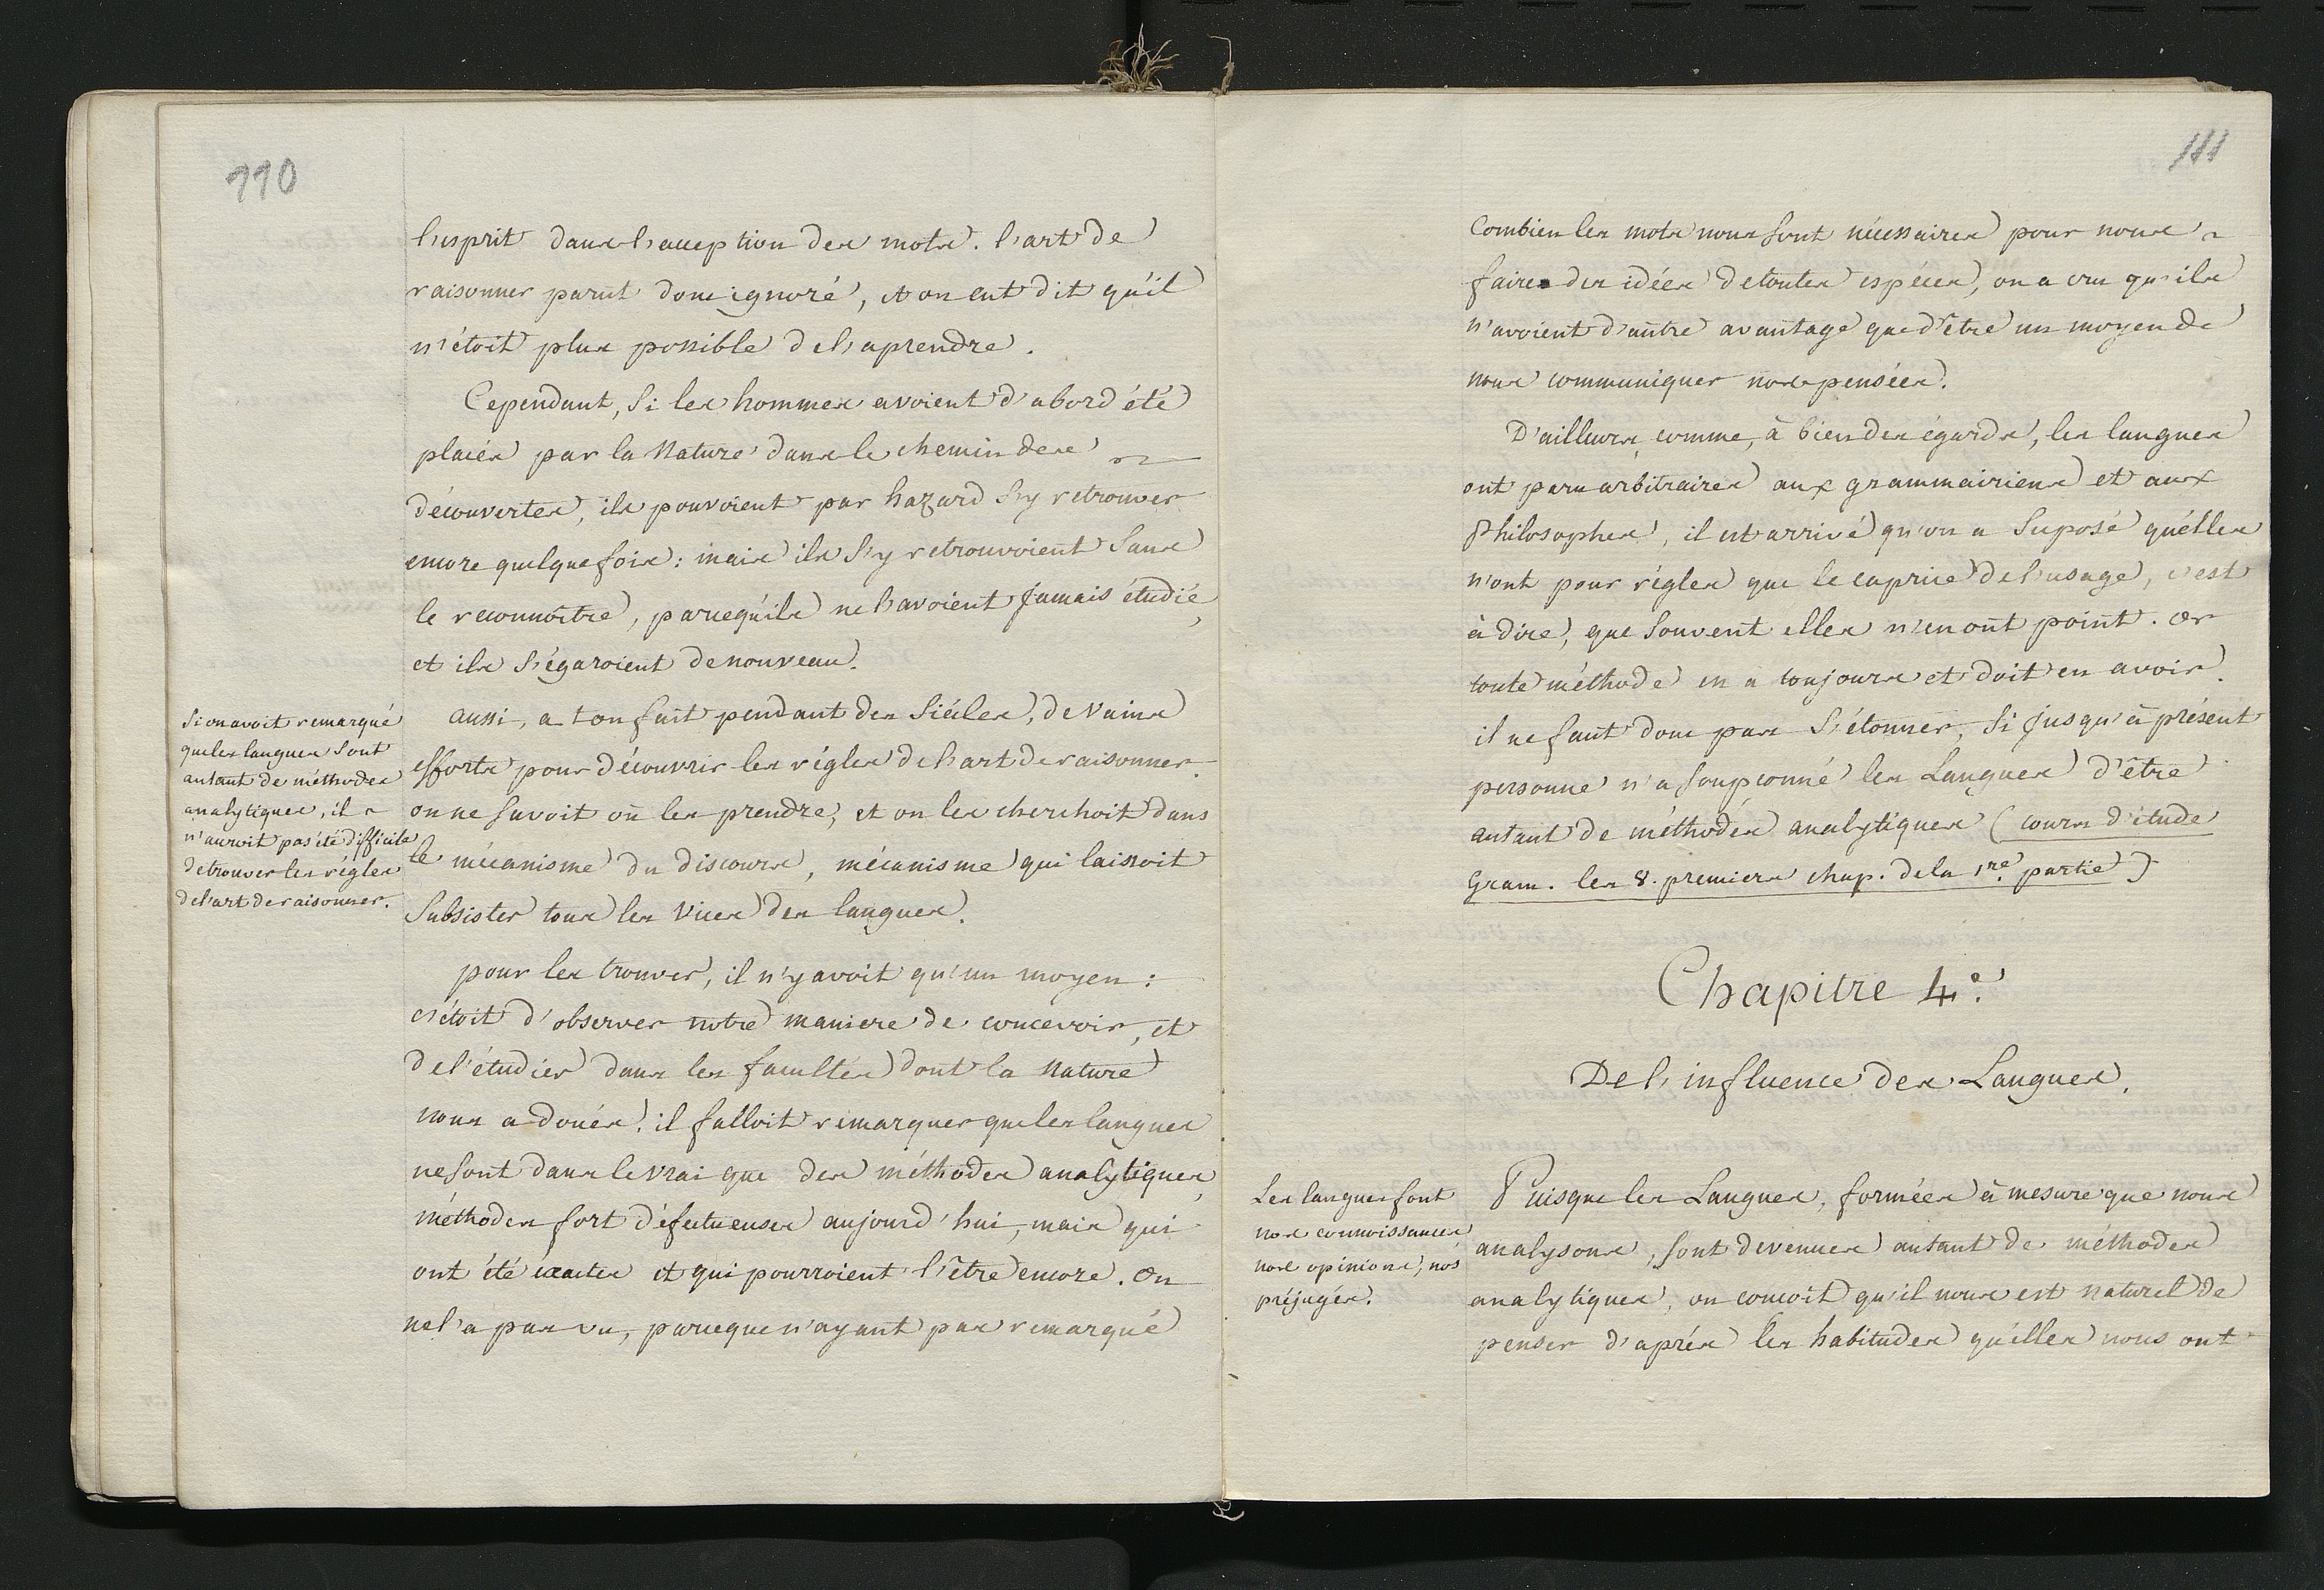 110
l'esprit dans l'acception des mots. l'art de
raisonner parut donc ignoré, et on eut dit qu'il
n'étoit plus possible de l'aprendre.
Cependant, si les hommes avoient d'abord été
placés par la Nature dans le chemin des
découvertes, ils pouvoient par hazard s'y retrouver
encore quelquefois: mais ils s'y retrouvoient sans
le reconnoître, parcequ'ils ne l'avoient jamais étudié,
et ils s'égaroient de nouveau.
Si on avoit remarqué
que les langues sont
autant de méthodes
analytiques, il
n'auroit pas été difficile
de trouver les régles
de l'art de raisonner.
aussi, a t on fait pendant des siécles, de vains
efforts pour découvrir les régles de l'art de raisonner.
on ne savoit où les prendre, et on les cherchoit dans
le mécanisme du discours, mécanisme qui laissoit
subsister tous les vices des langues.
pour les trouver, il n'y avoit qu'un moyen:
c'étoit d'observer notre maniere de concevoir, et
de l'étudier dans les facultés dont la Nature
nous a doués. il falloit remarquer que les langues
ne sont dans le vrai que des méthodes analytiques,
méthodes fort défectueuses aujourd'hui, mais qui
ont été exactes et qui pourroient l'être encore. on
ne l'a pas vu, parceque n'ayant pas remarqué
111
Combien les mots nous sont nécessaires pour nous
faire des idées de toutes espéces, on a cru qu'ils
n'avoient d'autre avantage que d'être un moyen de
nous communiquer nos pensées.
D'ailleurs, comme, à bien des égards, les langues
ont paru arbitraires aux grammairiens et aux
Philosophes, il est arrivé qu'on a suposé qu'elles
n'ont pour régles que le caprice de l'usage, c'est
à dire, que souvent elles n'en ont point. or
toute méthode en a toujours et doit en avoir.
il ne faut donc pas s'étonner, si jusqu'à présent
personne n'a soupçonné les Langues d'être
autant de méthodes analytiques (cours d'étude
Gram. les 8. premiers chap. de la 1re. partie)
Chapitre 4e.
De l'influence des Langues.
Les langues font
nos connoissances
nos opinions, nos
préjugés.
Puisque les Langues, formées à mesure que nous
analysons, sont devenues autant de méthodes
analytiques, on concoit qu'il nous est naturel de
penser d'aprés les habitudes qu'elles nous ont